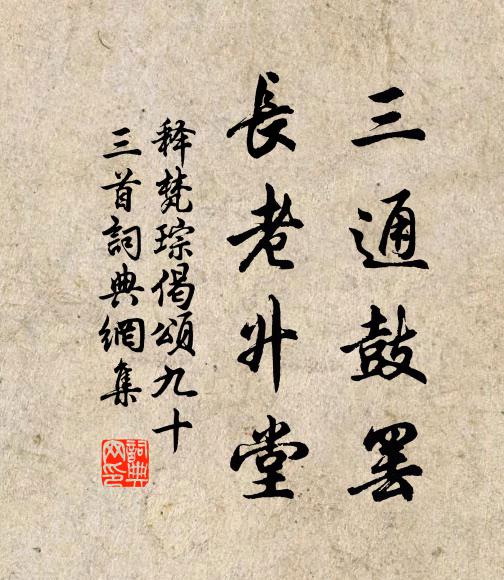 三通鼓罢
長老升堂
释梵琮偈頌九十
三首詞典網集
詞典
网印